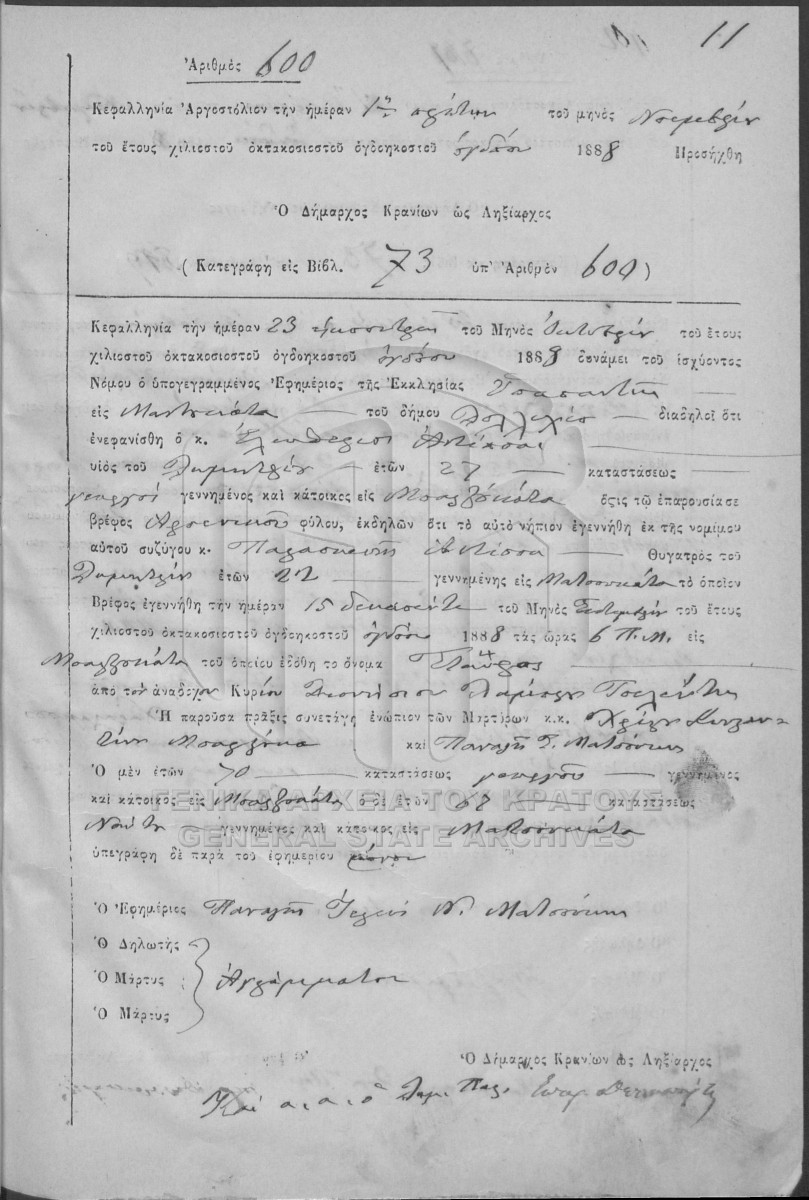 11
Ἀριθμὸς 600
Κεφαλληνία Ἀργοστόλιον τὴν ἡμέραν 1ην πρώτην τοῦ μηνὸς Νοεμβρίου
τοῦ ἔτους χιλιοστοῦ ὀκτακοσιοστοῦ ὀγδοηκοστοῦ ὀγδόου 1888 Προσήχθη
Ὁ Δήμαρχος Κρανίων ὡς Ληξίαρχος
(Κατεγράφη εἰς Βιβλ. 73 ὑπ' Ἀριθμὸν 600)
Κεφαλληνία τὴν ἡμέραν 23 εἰκοστὴν τρίτην τοῦ Μηνὸς Ὀκτωβρίου τοῦ ἔτους
χιλιοστοῦ ὀκτακοσιοστοῦ ὀγδοηκοστοῦ ὀγδόου 1888 δυνάμει τοῦ ἰσχύοντος
Νόμου ὁ ὑπογεγραμμένος Ἐφημέριος τῆς Ἐκκλησίας Ὑπαπαντῆς
εἰς Ματσουκάτα τοῦ δήμου διαδηλοῖ ὅτι
ἐνεφανίσθη ὁ κ. Ἐλευθέριος
υἱὸς τοῦ Δημητρίου ἐτῶν 27 καταστάσεως
γεωργοῦ γεννημένος καὶ κάτοικος εἰς Μπαρζουκάτα ὅςτις τῷ ἐπαρουσίασε
βρέφος Ἀρσενικοῦ φύλου, ἐκδηλῶν ὅτι τὸ αὐτὸ νήπιον ἐγεννήθη ἐκ τῆς νομίμου
αὐτοῦ συζύγου κ. Παρασκευῆς Θυγατρὸς τοῦ
Δημητρίου ἐτῶν 22 γεννημένης εἰς Ματσουκάτα τὸ ὁποῖον
Βρέφος ἐγεννήθη τὴν ἡμέραν 15 δεκαπέντε τοῦ Μηνὸς Σεπτεμβρίου τοῦ ἔτους
χιλιοστοῦ ὀκτακοσιοστοῦ ὀγδοηκοστοῦ ὀγδόου 1888 τὰς ὥρας 6 Π.Μ. εἰς
Μπαρζουκάτα τοῦ ὁποίου ἐδόθη τὸ ὄνομα Σταῦρος
ἀπὸ τὸν ἀνάδοχον Κυρίου Διονύσιον
Ἡ παροῦσα πρᾶξις συνετάγη ἐνώπιον τῶν Μαρτύρων κ.κ.
καὶ Παναγῆ Γ. Ματσούκη
Ὁ μὲν ἐτῶν 70 καταστάσεως γεωργοῦ γεννημένος
καὶ κάτοικος εἰς Μπαρζουκάτα ὁ δὲ ἐτῶν 67 καταστάσεως
Ναύτη γεννημένος καὶ κάτοικος εἰς Ματσουκάτα
ὑπεγράφη δὲ παρὰ τοῦ ἐφημερίου μόνου
ΓΕΝΙΚΑ ΑΡΧΕΙΑ ΤΟΥ ΚΡΑΤΟΥΣ
GENERAL STATE ARCHIVES
Ὁ Ἐφημέριος Παναγῆς Ἱερεὺς Ν. Ματσούκης
Ὁ Δηλωτὴς
Ὁ Μάρτυς Ἀγράμματοι
Ὁ Μάρτυς
Ὁ Δήμαρχος Κρανίων ὡς Ληξίαρχος